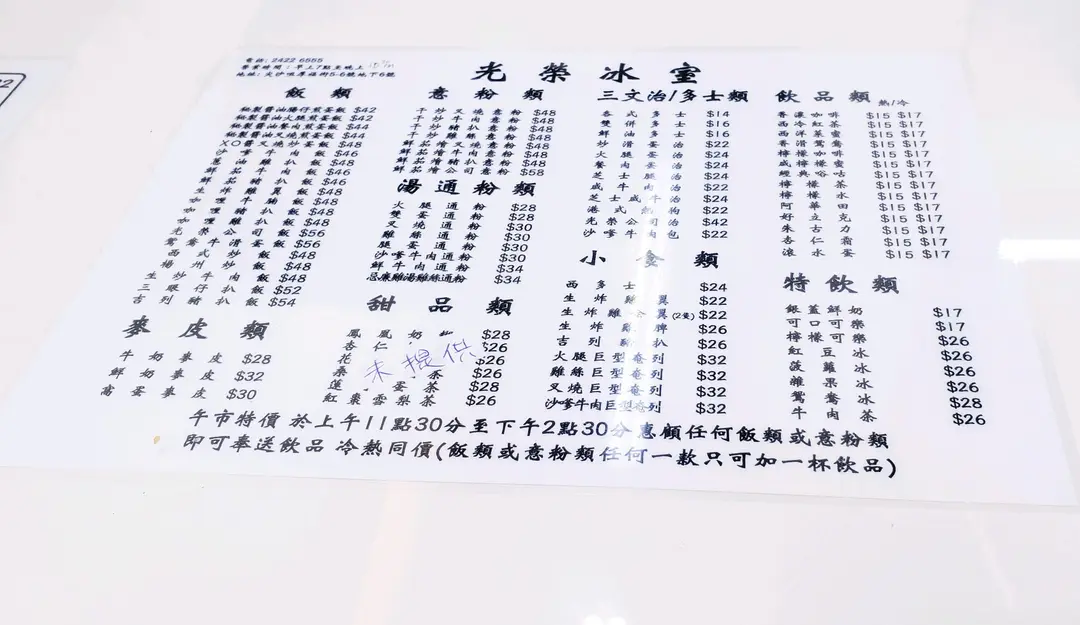 電話: 2422 6555
營業時間: 早上7點至晚上
地址: 尖沙咀厚福街5-6號地下6號
光榮冰室
飯類
秘製醬油腸仔煎蛋飯 $42
秘製醬油火腿煎蛋飯 $42
秘製醬油餐肉煎蛋飯 $44
秘製醬油叉燒煎蛋飯 $44
XO醬叉燒炒蛋飯 $48
沙嗲牛肉飯 $46
蔥油雞扒飯 $48
鮮茄牛肉飯 $46
鮮茄豬扒飯 $46
生炸雞翼飯 $48
咖喱牛腩飯 $48
咖喱豬扒飯 $48
咖喱雞扒飯 $48
光榮公司飯 $56
鴛鴦牛滑蛋飯 $56
西式炒飯 $48
揚州炒飯 $48
生炒牛肉飯 $48
三眼仔扒飯 $52
吉列豬扒飯 $54
麥皮類
牛奶麥皮 $28
鮮奶麥皮 $32
窩蛋麥皮 $30
意粉類
干炒叉燒意粉 $48
干炒牛肉意粉 $48
干炒豬扒意粉 $48
干炒雞絲意粉 $48
鮮茄燴牛肉意粉 $48
鮮茄燴豬扒意粉 $48
鮮茄燴公司意粉 $58
湯通粉類
火腿通粉 $28
雙蛋通粉 $28
叉燒通粉 $30
雞絲通粉 $30
腿蛋通粉 $30
沙嗲牛肉通粉 $30
鮮牛肉通粉 $34
忌廉雞湯雞絲通粉 $34
甜品類
鳳凰奶 $28
杏仁 $26
花 $26
桑 茶 $26
蓮 蛋茶 $28
紅棗雪梨茶 $26
未提供
三文治/多士類
各式多士 $14
雙併多士 $16
鮮油多士 $16
炒滑蛋治 $22
火腿蛋治 $24
餐肉蛋治 $24
芝士蛋治 $24
咸牛肉治 $22
芝士咸牛治 $24
港式熱狗 $22
光榮公司治 $42
沙嗲牛肉包 $22
小食類
西多士 $24
生炸雞翼 $22
生炸雞全翼(2隻) $22
生炸雞髀 $26
吉列豬扒 $26
火腿巨型奄列 $32
雞絲巨型奄列 $32
叉燒巨型奄列 $32
沙嗲牛肉巨型奄列 $32
飲品類 熱/冷
香滾咖啡 $15 $17
西冷紅茶 $15 $17
西洋菜蜜 $15 $17
香滑鴛鴦 $15 $17
檸檬咖啡 $15 $17
檸檬檸蜜 $15 $17
經典唂咕 $15 $17
檸檬茶 $15 $17
檸檬水 $15 $17
阿華田 $15 $17
好立克 $15 $17
朱古力 $15 $17
杏仁霜 $15 $17
滾水蛋 $15 $17
特飲類
銀蓋鮮奶 $17
可口可樂 $17
檸檬可樂 $26
紅豆冰 $26
菠蘿冰 $26
雜果冰 $26
鴛鴦冰 $28
牛肉茶 $26
午市特價 於上午11點30分至下午2點30分惠顧任何飯類或意粉類
即可奉送飲品 冷熱同價(飯類或意粉類任何一款只可加一杯飲品)